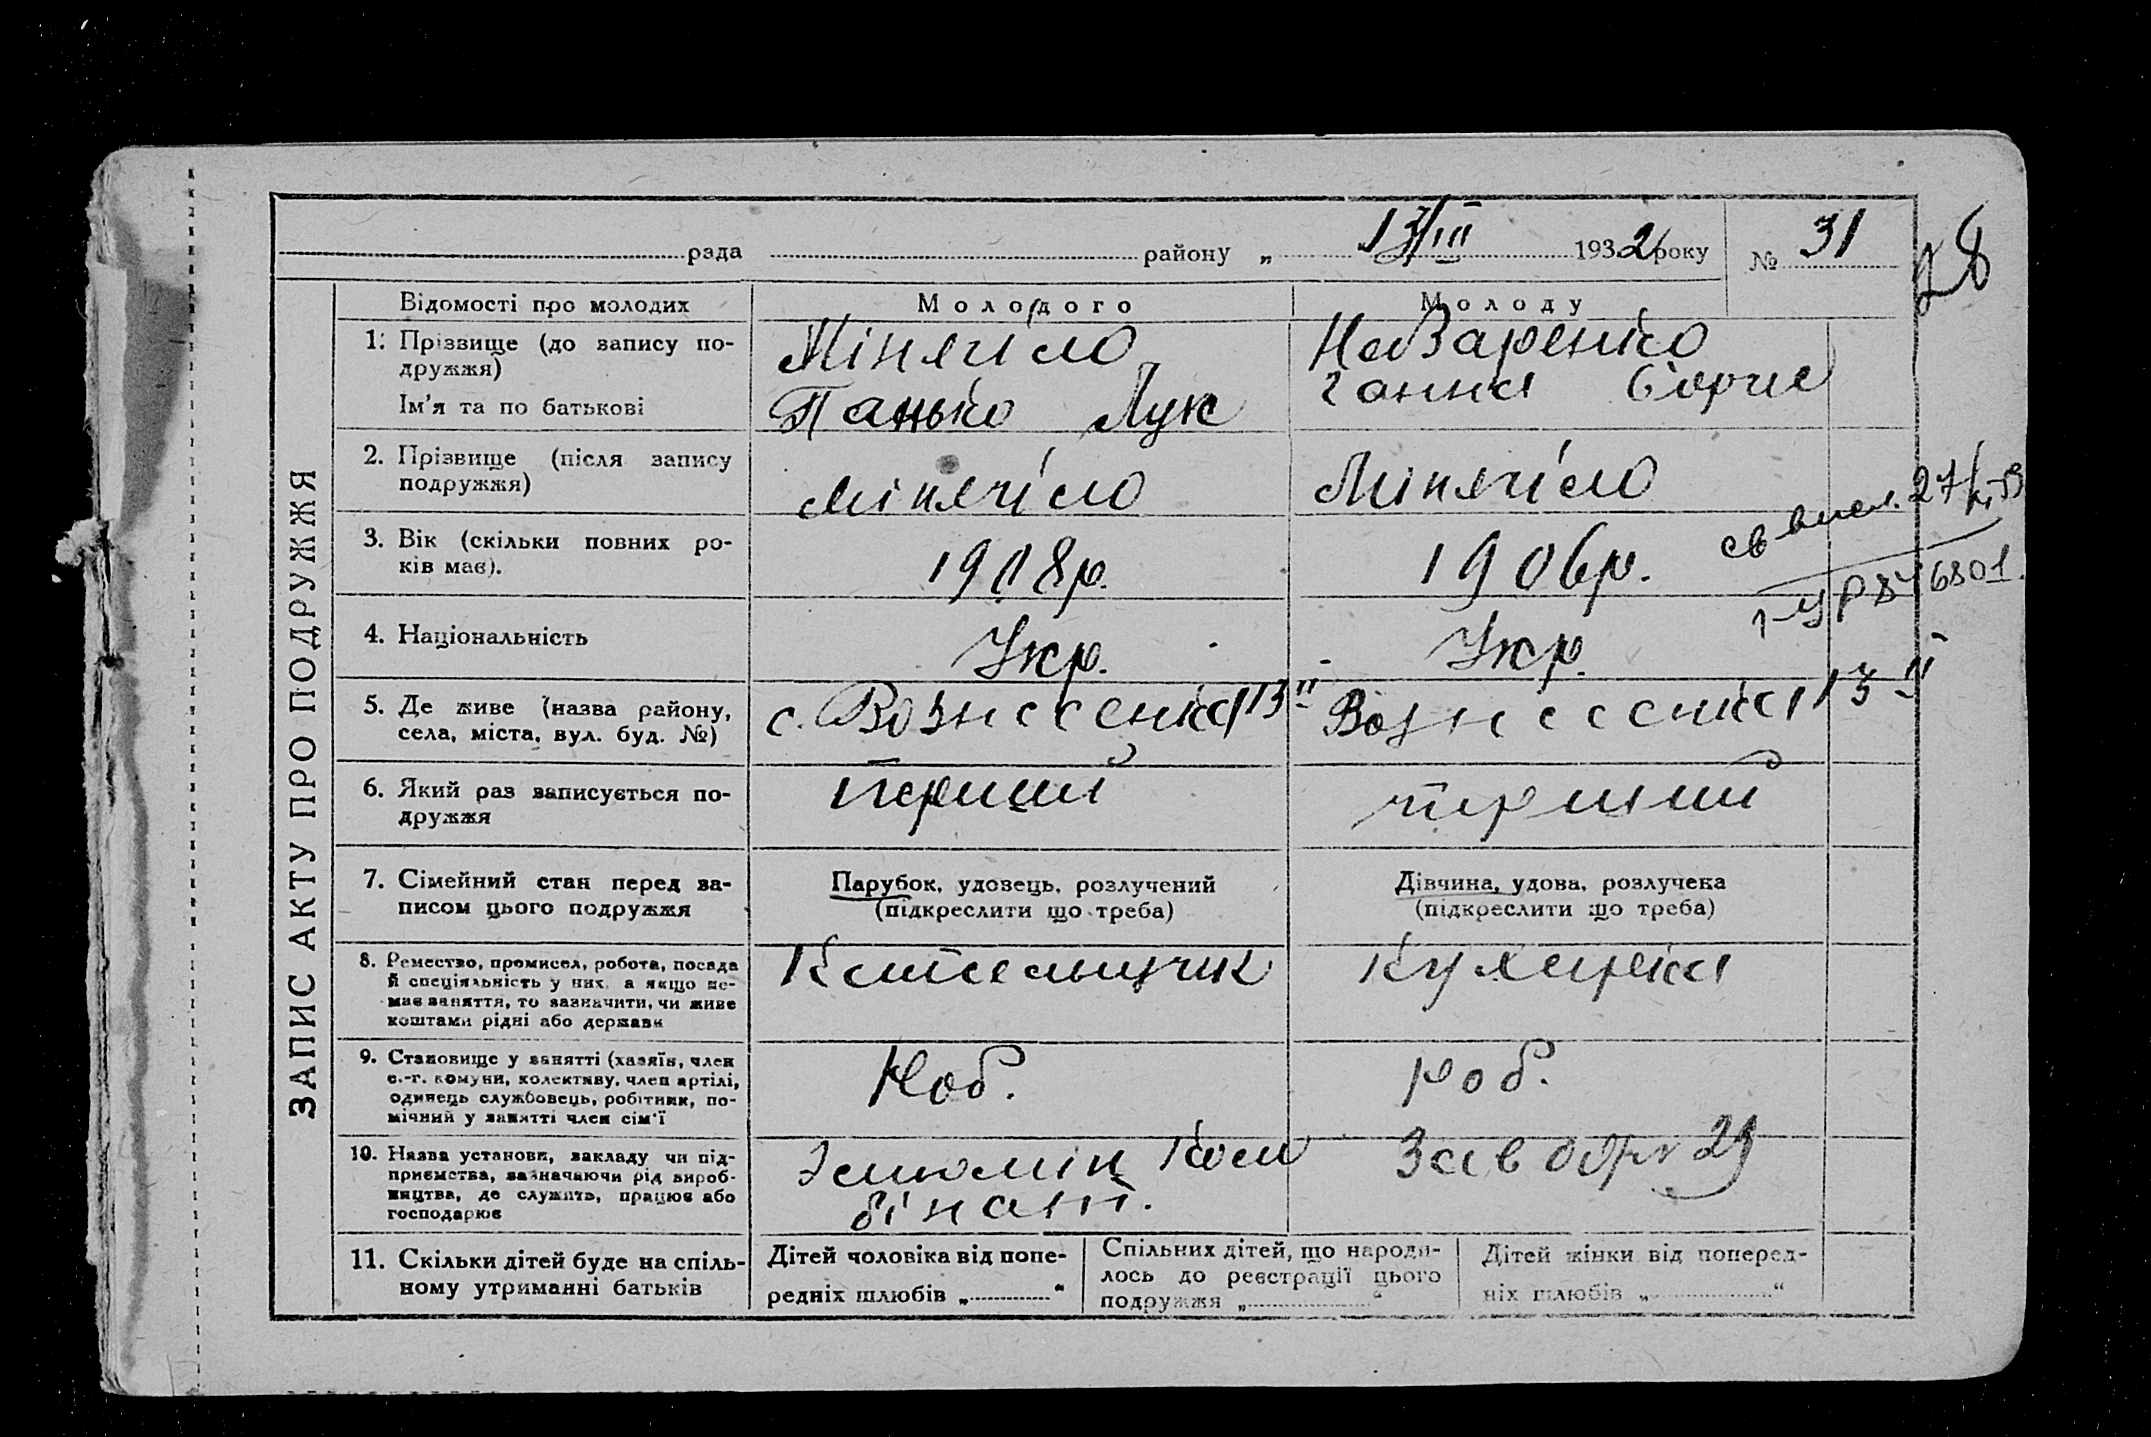 рада району „ 13/III 1932 року № 31
28
ЗАПИС АКТУ ПРО ПОДРУЖЖЯ
Відомості про молодих
Молодого
Молоду
1. Прізвище (до запису по-
дружжя)
Ім'я та по батькові
Мінячіло
Панько Лук
Назаренко
Ганна Борис
2. Прізвище (після запису
подружжя)
Мінячіло
Мінячіло
3. Вік (скільки повних ро-
ків має).
1908р.
1906р.
4. Національність
Укр.
Укр.
5. Де живе (назва району,
села, міста, вул. буд. №)
с. Вознесенка 13
Вознесенка 13
6. Який раз записується по-
дружжя
перший
перший
7. Сімейний стан перед за-
писом цього подружжя
Парубок, удовець, розлучений
(підкреслити що треба)
Дівчина, удова, розлучена
(підкреслити що треба)
8. Ремество, промисел, робота, посада
й спеціяльність у них, а якщо не-
має заняття, то зазначити, чи живе
коштами рідні або держави
Котельщик
Кухарка
9. Становище у занятті (хазяїн, член
с.-г. комуни, колективу, член артілі,
одинець службовець, робітник, по-
мічний у занятті член сім'ї
Роб.
роб.
10. Назва установи, закладу чи під-
приємства, зазначаючи рід вироб-
ництва, де служить, працює або
господарює
Алюмін Ком
бінат.
Завод № 29
11. Скільки дітей буде на спіль-
ному утриманні батьків
Дітей чоловіка від попе-
редніх шлюбів „ “
Спільних дітей, що народи-
лось до реєстрації цього
подружжя „ “
Дітей жінки від поперед-
ніх шлюбів „ “